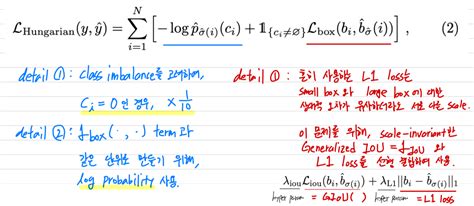 L_Hungarian(y, ŷ) = Σ_{i=1}^{N} [ −log p̂_{σ̂(i)}(c_i) + 𝟙_{c_i≠∅} L_box(b_i, b̂_{σ̂}(i)) ] , (2)
detail ①: class imbalance를 고려하여,
C_i = 0 인 경우, × 1/10
detail ②: L_box(·, ·) term과
같은 단위로 만들기 위해,
log probability 사용.
detail ①: 흔히 사용하는 L1 loss는
small box와 large box에 대한
상대적 오차가 유사하더라도 서로 다른 scale.
이 문제를 위해, scale-invariant한
Generalized IOU = L_iou 와
L1 loss를 선형 결합하여 사용.
λ_iou L_iou(b_i, b̂_{σ(i)}) + λ_L1 ||b_i − b̂_{σ(i)}||_1
hyper param = GIOU( ) hyper param = L1 loss